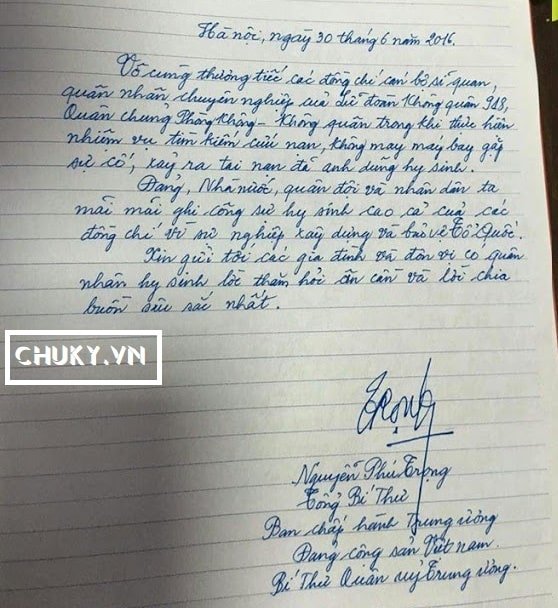 Hà nội, ngày 30 tháng 6 năm 2016.
Vô cùng thương tiếc các đồng chí cán bộ sĩ quan,
quân nhân chuyên nghiệp của lữ đoàn Không quân 918,
Quân chủng Phòng Không - Không quân trong khi thực hiện
nhiệm vụ tìm kiếm cứu nạn, không may máy bay gặp
sự cố, xảy ra tai nạn đã anh dũng hy sinh.
Đảng, Nhà nước, quân đội và nhân dân ta
mãi mãi ghi công sự hy sinh cao cả của các
đồng chí vì sự nghiệp xây dựng và bảo vệ Tổ Quốc.
Xin gửi tới các gia đình và đơn vị có quân
nhân hy sinh lời thăm hỏi ân cần và lời chia
buồn sâu sắc nhất.
CHUKY.VN
Trọng
Nguyễn Phú Trọng
Tổng Bí Thư
Ban chấp hành Trung ương
Đảng cộng sản Việt nam.
Bí Thư Quân uỷ Trung ương.